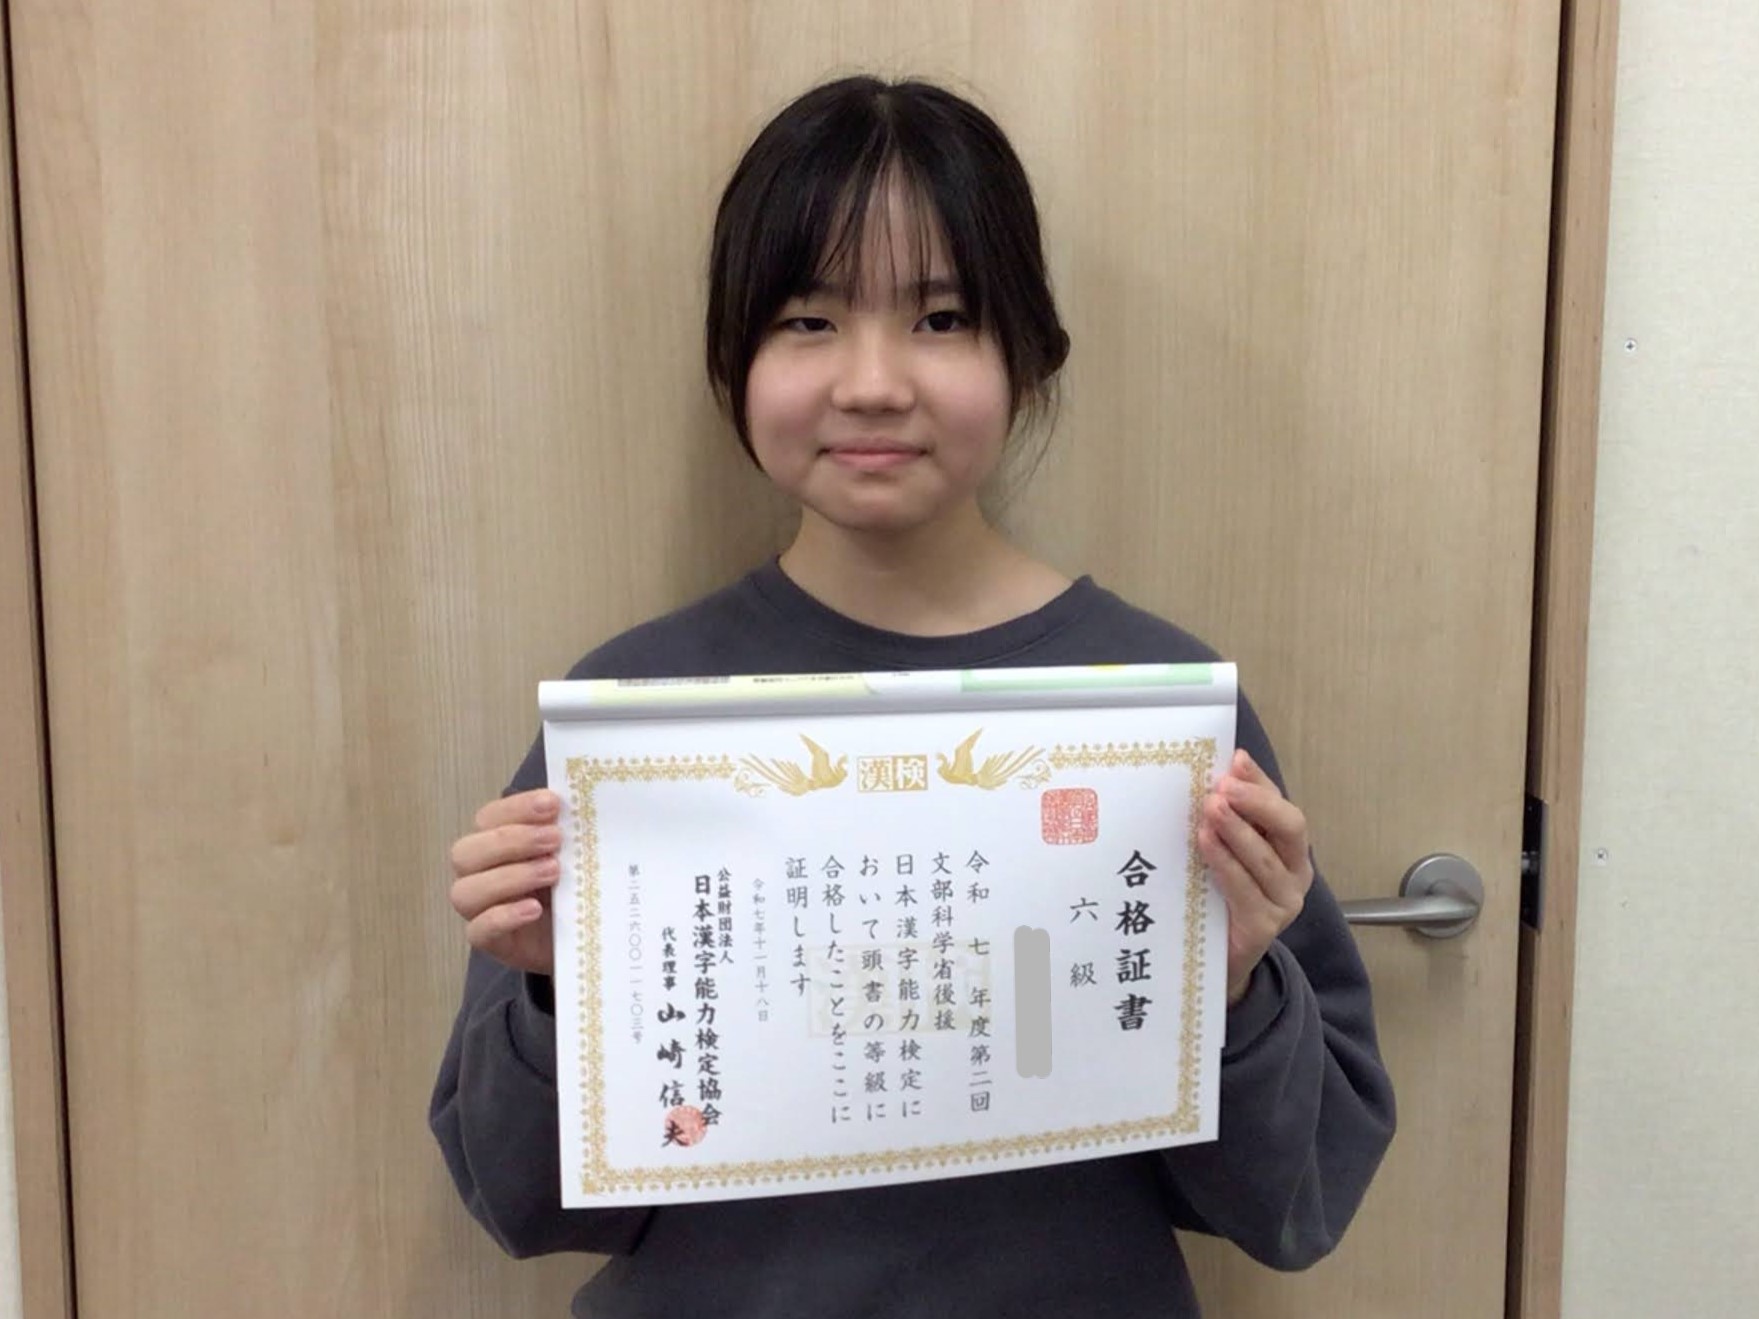 漢検
合格証書
六級
令和七年度第二回
文部科学省後援
日本漢字能力検定に
おいて頭書の等級に
合格したことをここに
証明します
令和七年十一月十八日
公益財団法人
日本漢字能力検定協会
代表理事 山崎信夫
第二五二六〇〇一一七〇三号